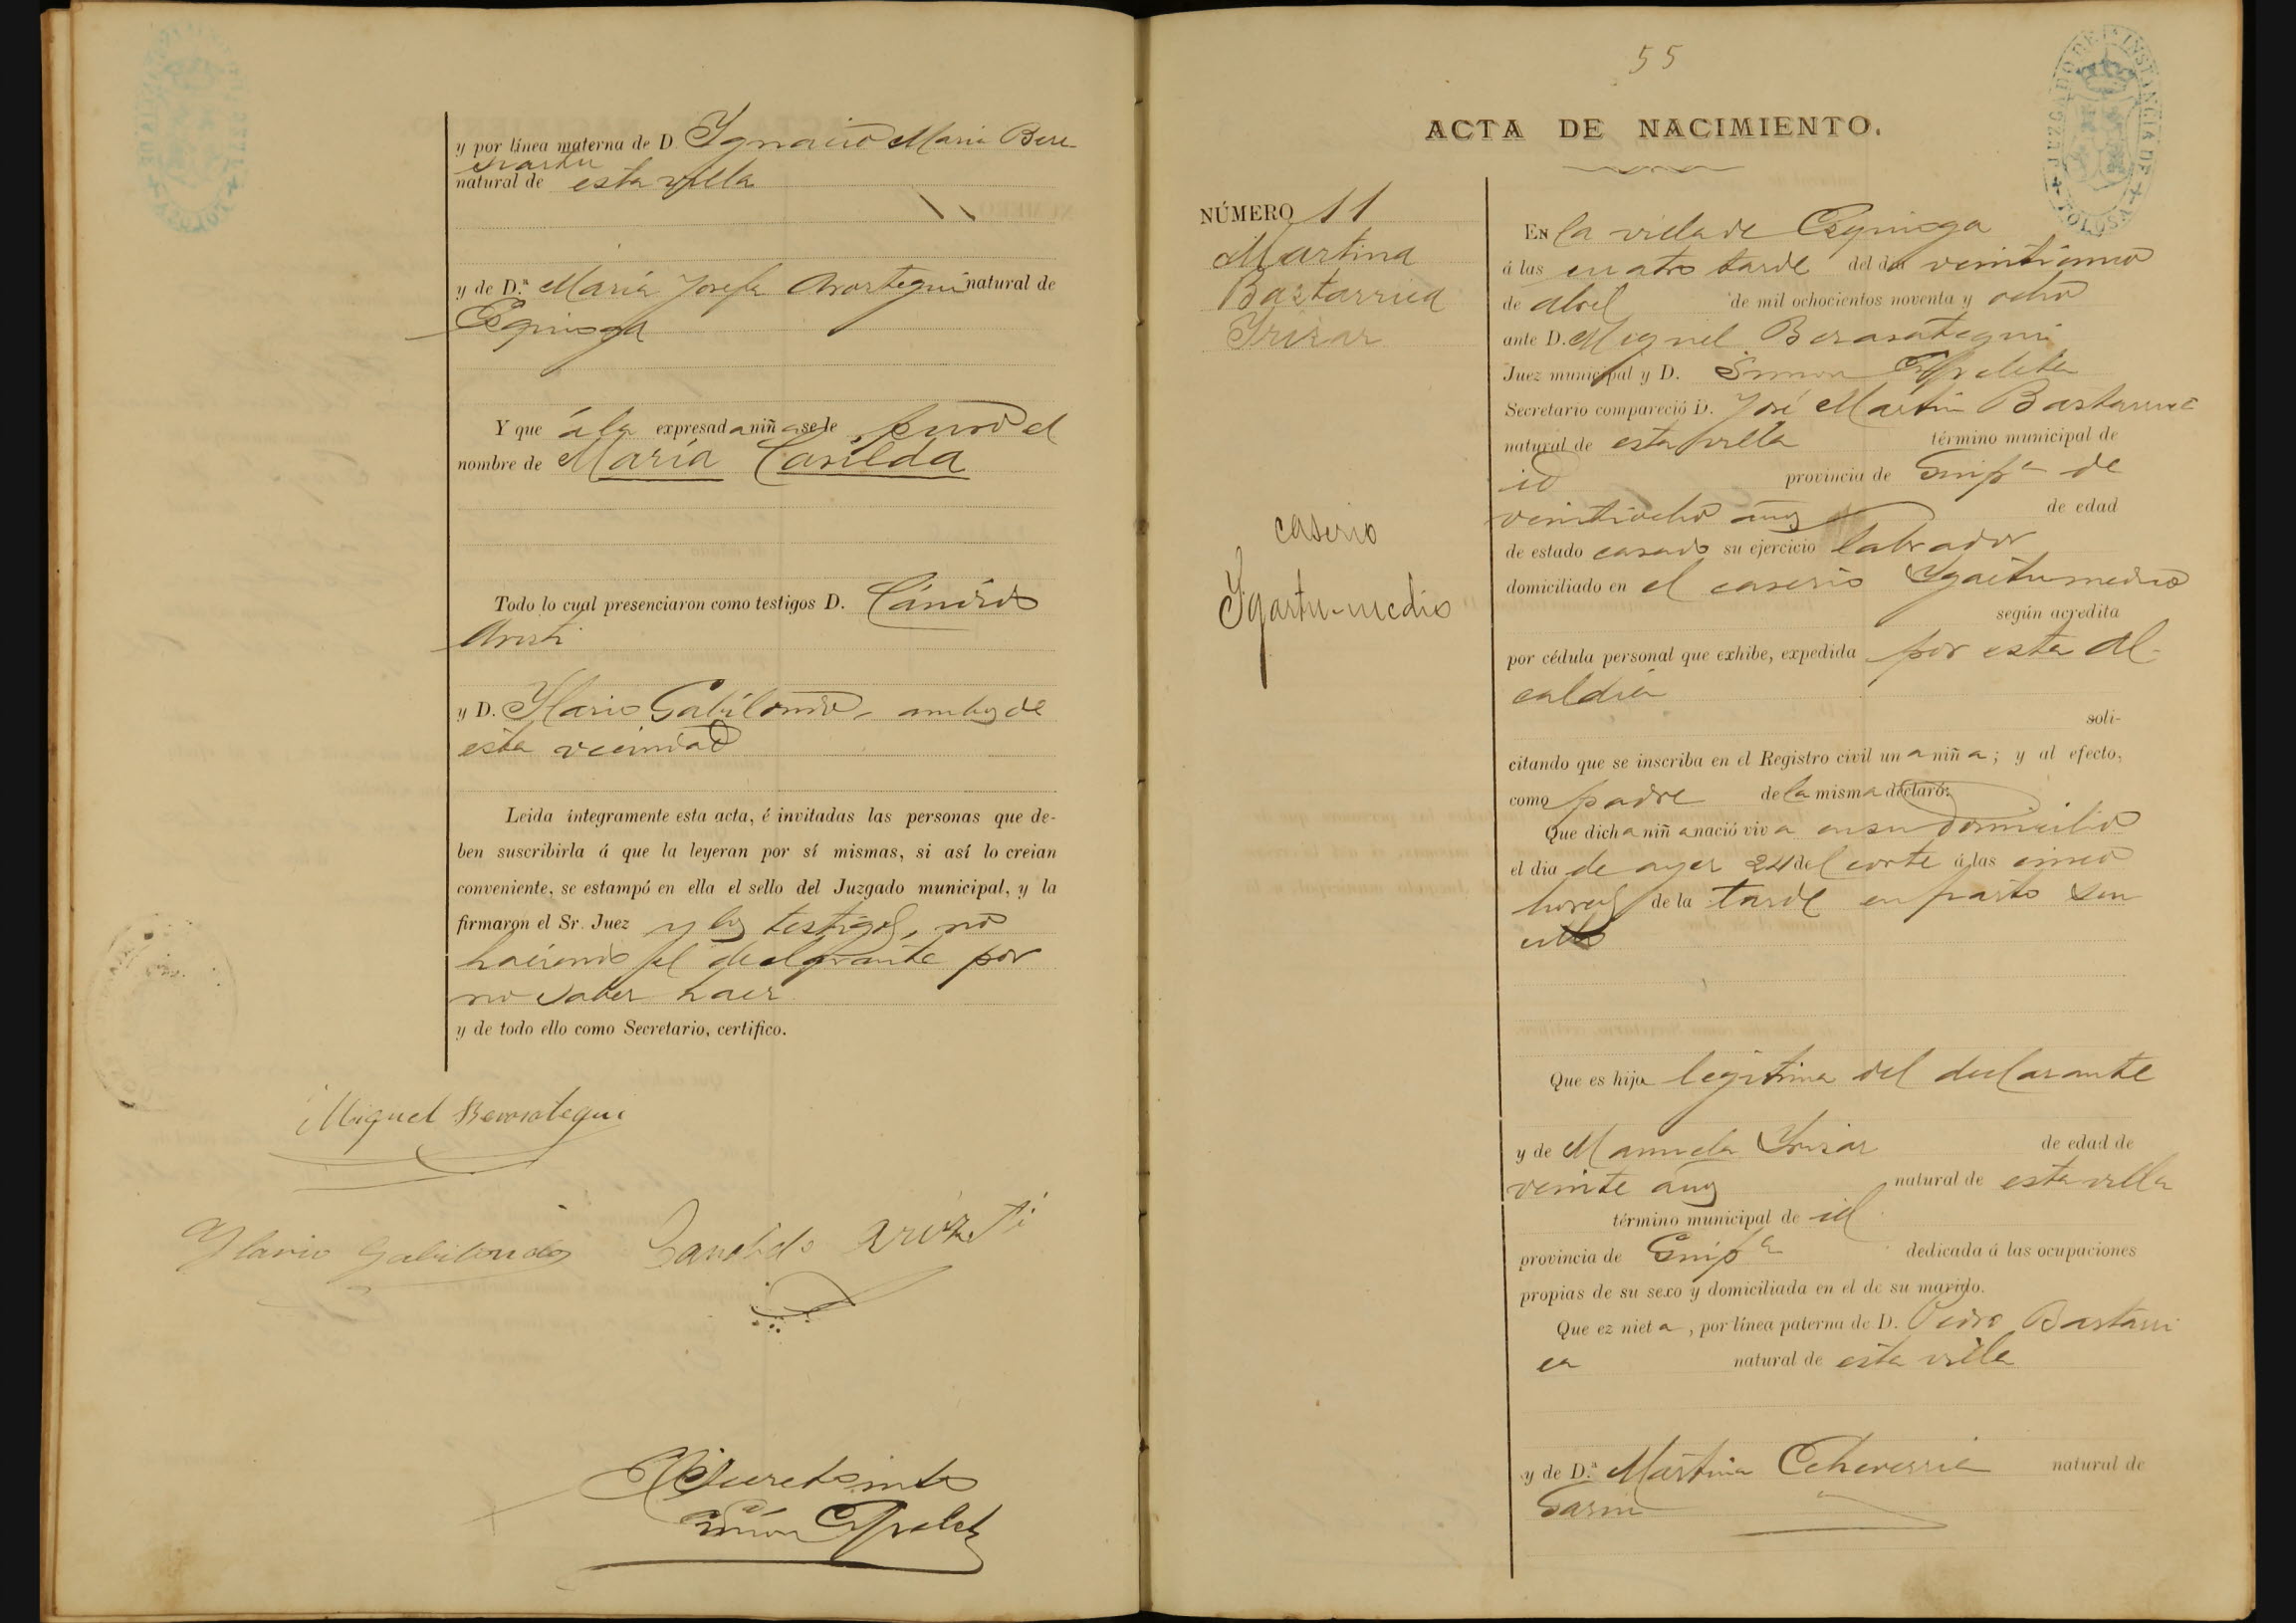 y por línea materna de D. Ygnacio Maria Bere-
siartu
natural de esta villa
y de D.ª Maria Josefa Arostegui natural de
Ezquioga
Y que á la expresada niña se le puso el
nombre de María Casilda
Todo lo cual presenciaron como testigos D. Cándido
Aristi
y D. Ylario Gabilondo, ambos de
esta vecindad
Leida íntegramente esta acta, é invitadas las personas que de-
ben suscribirla á que la leyeran por sí mismas, si así lo creian
conveniente, se estampó en ella el sello del Juzgado municipal, y la
firmaron el Sr. Juez y los testigos, no
haciendo el declarante por
no saber hacer
y de todo ello como Secretario, certifico.
Miguel Berasategui
Ylario Gabilondo Candido Arizti
El Secretario
Simon
55
ACTA DE NACIMIENTO.
JUZGADO DE 1ª INSTANCIA DE TOLOSA
NÚMERO 11
Martina
Baztarrica
Yrizar
caserio
Ygartu-medio
EN la villa de Ezquioga
á las cuatro tarde del dia veinticinco
de abril de mil ochocientos noventa y ocho
ante D. Miguel Berasategui
Juez municipal y D. Simon
Secretario compareció D. José Martin Bastarrica
natural de esta villa término municipal de
id provincia de Guipª de
veintiocho años de edad
de estado casado su ejercicio labrador
domiciliado en el caserio Ygartumedio
según acredita
por cédula personal que exhibe, expedida por esta Al-
caldia
soli-
citando que se inscriba en el Registro civil una niña; y al efecto,
como padre de la misma declaró:
Que dicha niña nació viva en su domicilio
el dia de ayer 24 del corte á las cinco
horas de la tarde en parto sen
cillo
Que es hija legitima del declarante
y de Manuela Yrisar de edad de
veinte años natural de esta villa
término municipal de id
provincia de Guipª dedicada á las ocupaciones
propias de su sexo y domiciliada en el de su marido.
Que ez nieta, por línea paterna de D. Pedro Bastarri
ca natural de esta villa
y de D.ª Martina Echeverria natural de
Garin